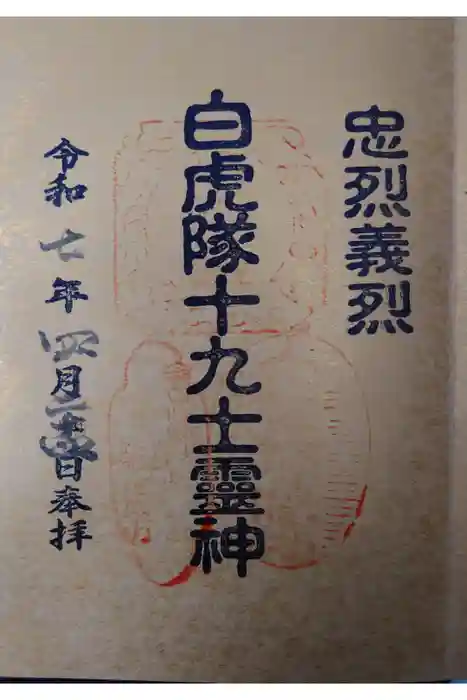 忠烈義烈
白虎隊十九士靈神
令和七年四月二十六日奉拝